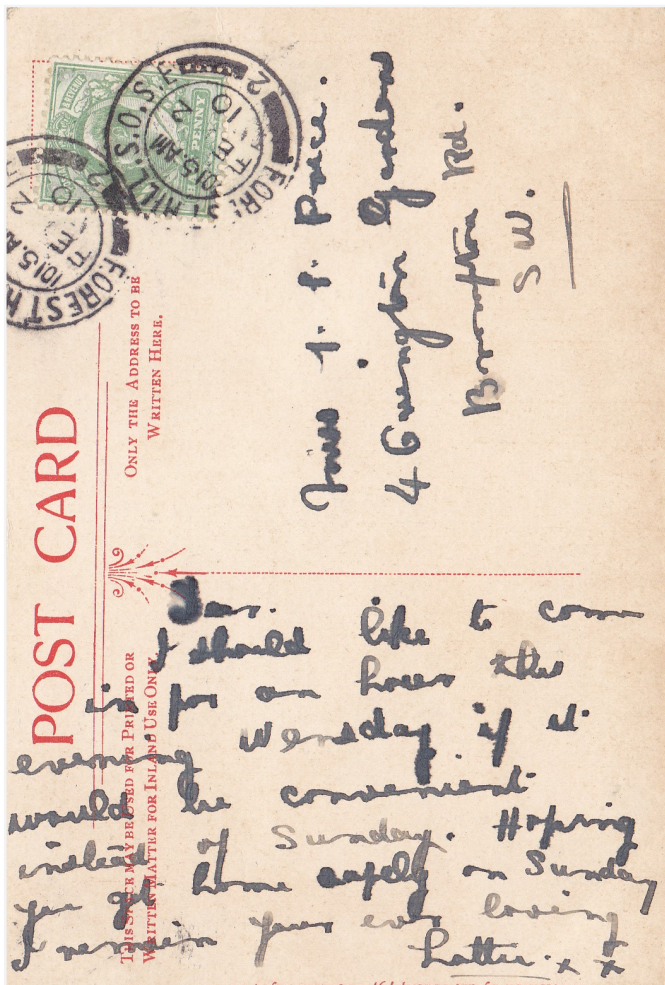 POST CARD
THIS SPACE MAY BE USED FOR PRINTED OR
WRITTEN MATTER FOR INLAND USE ONLY.
ONLY THE ADDRESS TO BE
WRITTEN HERE.
FOREST HILL S.O. S.E.
2
1015 AM
FE 2
10
FOREST H
2
1015 A
FE 2
10
PENNY
Miss J. P. Price.
4 Ovington Gardens
Brompton Rd.
S W.
Dear.
I should like to come
in for an hour this
evening Wensday if it
would be convenient
instead of Sunday. Hoping
you got home safely on Sunday
I remain your ever loving
Lottie. x x